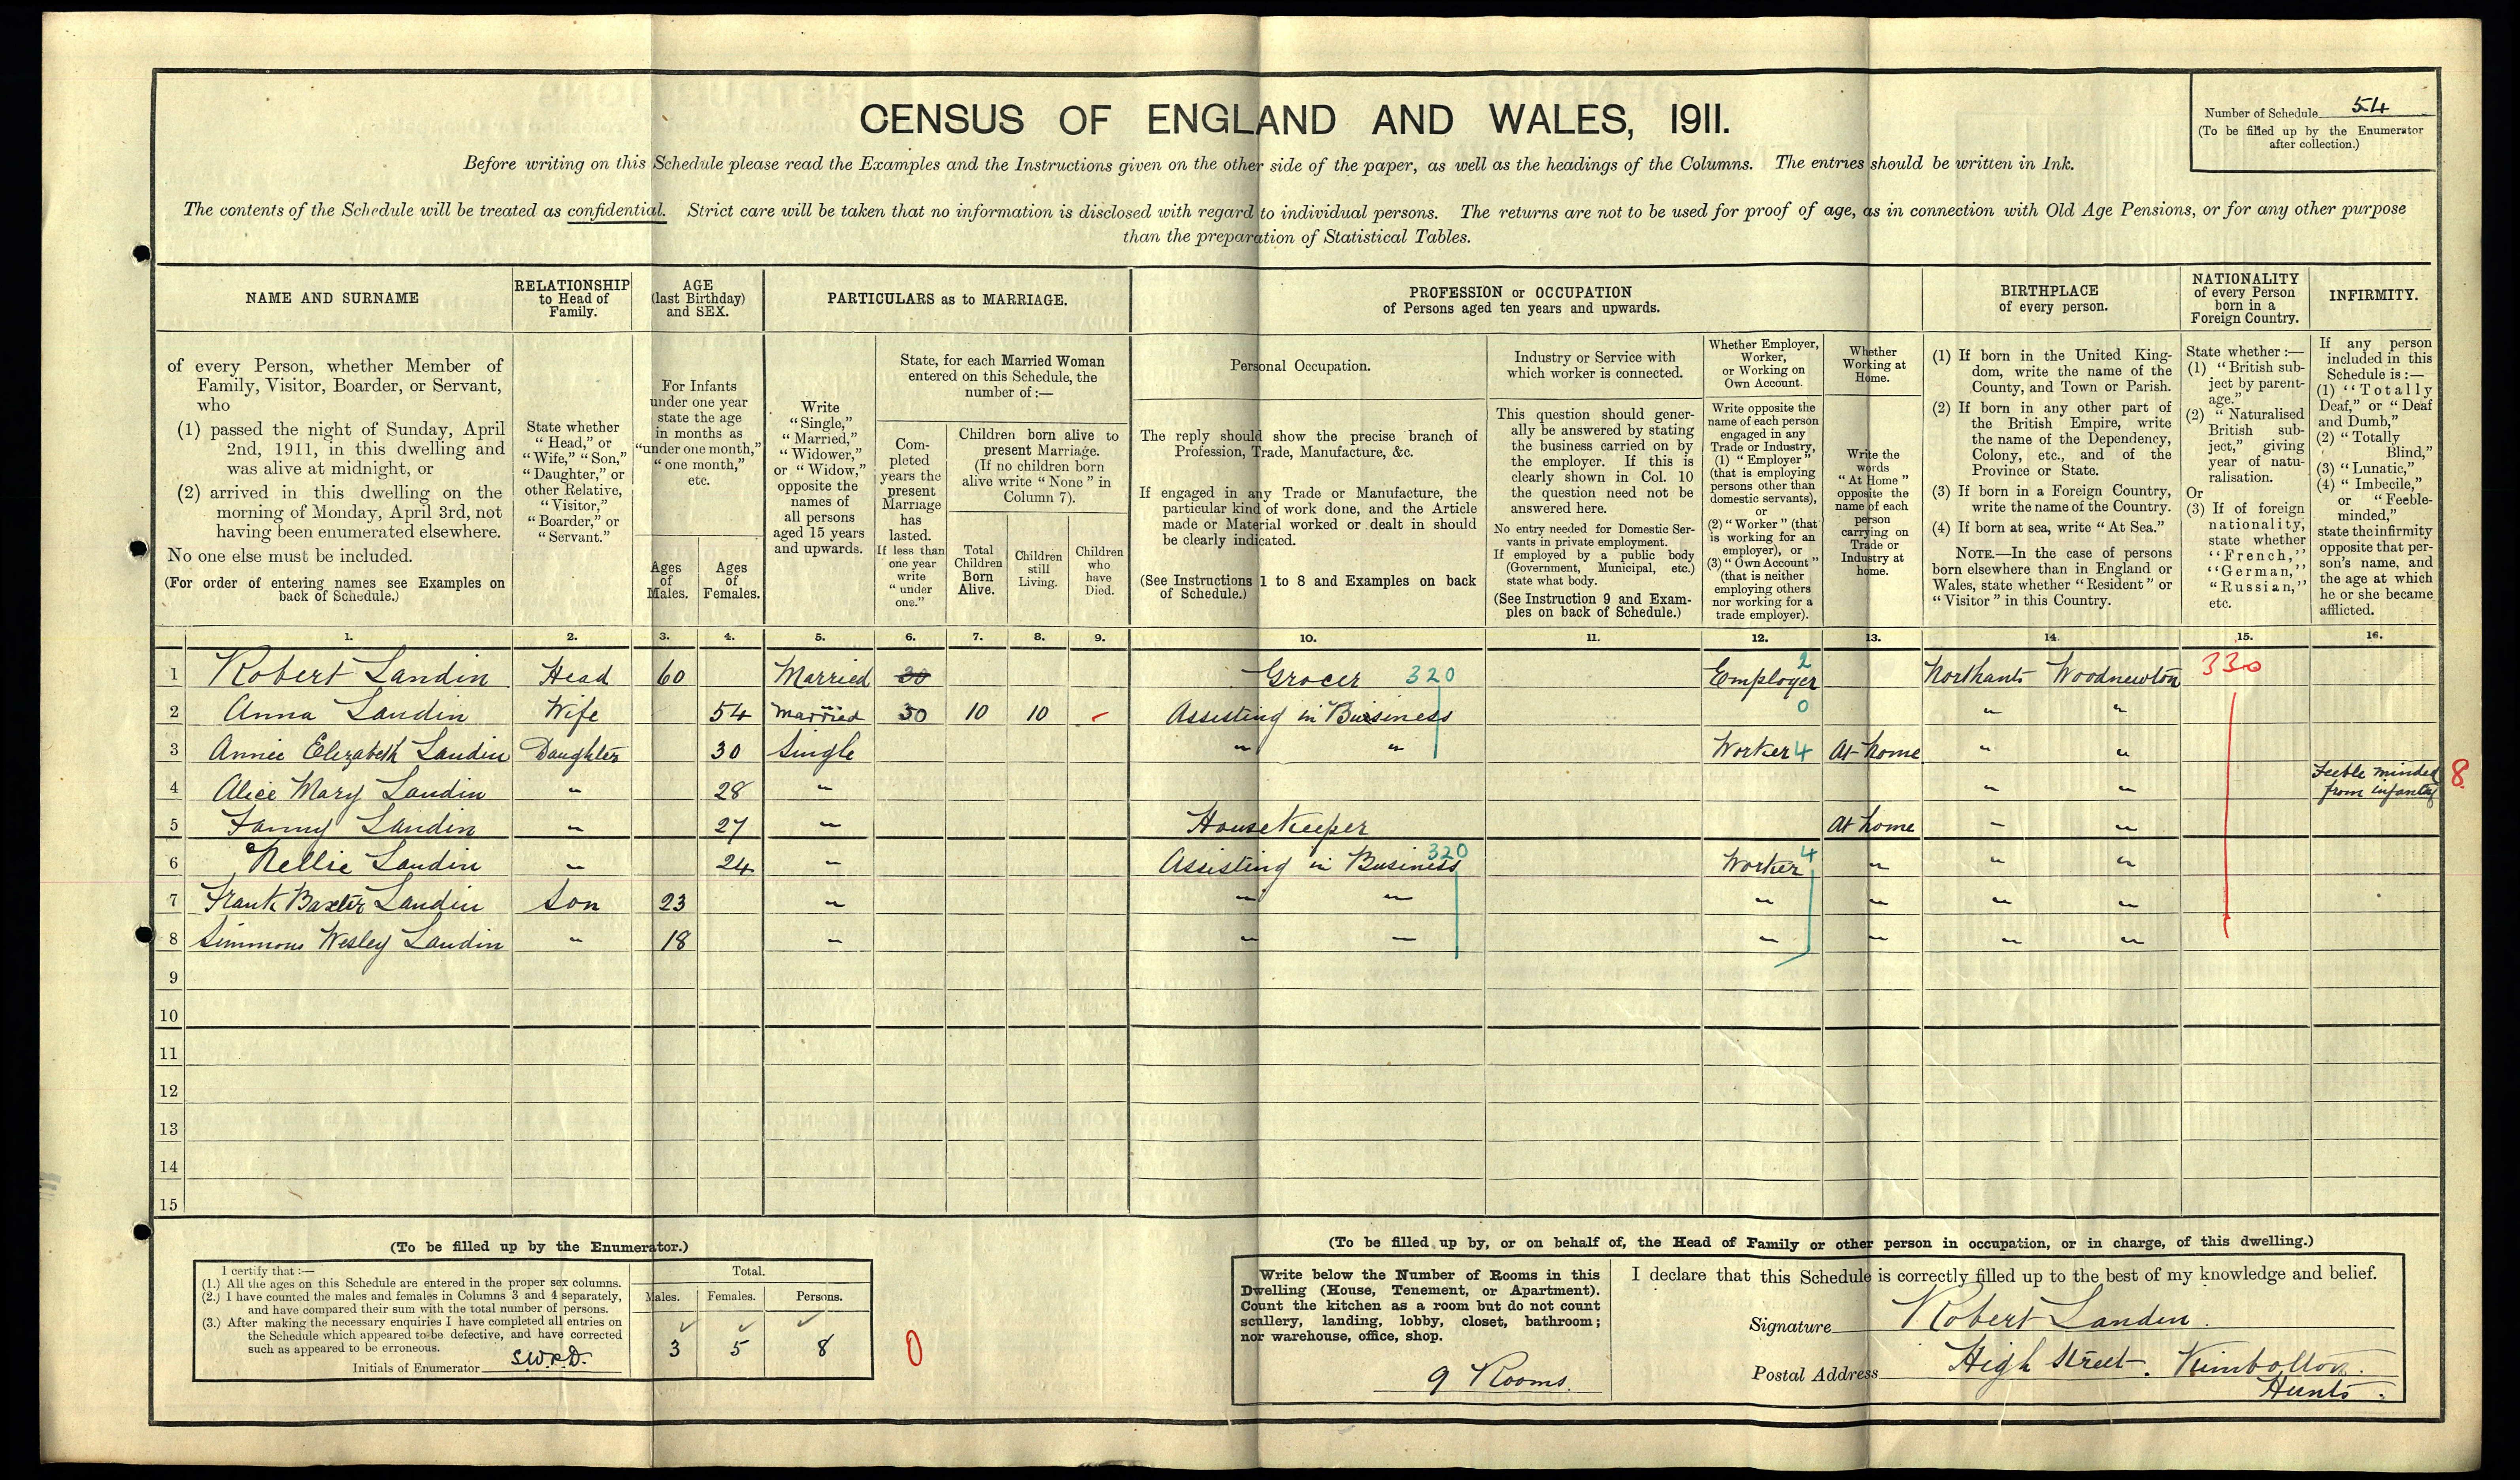 CENSUS OF ENGLAND AND WALES, 1911.
Number of Schedule 54
(To be filled up by the Enumerator
after collection.)
Before writing on this Schedule please read the Examples and the Instructions given on the other side of the paper, as well as the headings of the Columns. The entries should be written in Ink.
The contents of the Schedule will be treated as confidential. Strict care will be taken that no information is disclosed with regard to individual persons. The returns are not to be used for proof of age, as in connection with Old Age Pensions, or for any other purpose
than the preparation of Statistical Tables.
NAME AND SURNAME
of every Person, whether Member of
Family, Visitor, Boarder, or Servant,
who
(1) passed the night of Sunday, April
2nd, 1911, in this dwelling and
was alive at midnight, or
(2) arrived in this dwelling on the
morning of Monday, April 3rd, not
having been enumerated elsewhere.
No one else must be included.
(For order of entering names see Examples on
back of Schedule.)
RELATIONSHIP
to Head of
Family.
State whether
"Head," or
"Wife," "Son,"
"Daughter," or
other Relative,
"Visitor,"
"Boarder," or
"Servant."
AGE
(last Birthday)
and SEX.
For Infants
under one year
state the age
in months as
"under one month,"
"one month,"
etc.
Ages
of
Males.
Ages
of
Females.
PARTICULARS as to MARRIAGE.
Write
"Single,"
"Married,"
"Widower,"
or "Widow,"
opposite the
names of
all persons
aged 15 years
and upwards.
State, for each Married Woman
entered on this Schedule, the
number of:—
Com-
pleted
years the
present
Marriage
has
lasted.
If less than
one year
write
"under
one."
Children born alive to
present Marriage.
(If no children born
alive write "None" in
Column 7).
Total
Children
Born
Alive.
Children
still
Living.
Children
who
have
Died.
PROFESSION or OCCUPATION
of Persons aged ten years and upwards.
Personal Occupation.
The reply should show the precise branch of
Profession, Trade, Manufacture, &c.
If engaged in any Trade or Manufacture, the
particular kind of work done, and the Article
made or Material worked or dealt in should
be clearly indicated.
(See Instructions 1 to 8 and Examples on back
of Schedule.)
Industry or Service with
which worker is connected.
This question should gener-
ally be answered by stating
the business carried on by
the employer. If this is
clearly shown in Col. 10
the question need not be
answered here.
No entry needed for Domestic Ser-
vants in private employment.
If employed by a public body
(Government, Municipal, etc.)
state what body.
(See Instruction 9 and Exam-
ples on back of Schedule.)
Whether Employer,
Worker,
or Working on
Own Account.
Write opposite the
name of each person
engaged in any
Trade or Industry,
(1) "Employer"
(that is employing
persons other than
domestic servants),
or
(2) "Worker" (that
is working for an
employer), or
(3) "Own Account"
(that is neither
employing others
nor working for a
trade employer).
Whether
Working at
Home.
Write the
words
"At Home"
opposite the
name of each
person
carrying on
Trade or
Industry at
home.
BIRTHPLACE
of every person.
(1) If born in the United King-
dom, write the name of the
County, and Town or Parish.
(2) If born in any other part of
the British Empire, write
the name of the Dependency,
Colony, etc., and of the
Province or State.
(3) If born in a Foreign Country,
write the name of the Country.
(4) If born at sea, write "At Sea."
NOTE.—In the case of persons
born elsewhere than in England or
Wales, state whether "Resident" or
"Visitor" in this Country.
NATIONALITY
of every Person
born in a
Foreign Country.
State whether:—
(1) "British sub-
ject by parent-
age."
(2) "Naturalised
British sub-
ject," giving
year of natu-
ralisation.
Or
(3) If of foreign
nationality,
state whether
"French,"
"German,"
"Russian,"
etc.
INFIRMITY.
If any person
included in this
Schedule is:—
(1) "Totally
Deaf," or "Deaf
and Dumb,"
(2) "Totally
Blind,"
(3) "Lunatic,"
(4) "Imbecile,"
or "Feeble-
minded,"
state the infirmity
opposite that per-
son's name, and
the age at which
he or she became
afflicted.
1. 2. 3. 4. 5. 6. 7. 8. 9. 10. 11. 12. 13. 14. 15. 16.
1 Robert Landin Head 60 Married 30 Grocer 320 Employer 2 Northants Woodnewton 330
2 Anna Landin Wife 54 Married 30 10 10 - Assisting in Business 0 " "
3 Annie Elizabeth Landin Daughter 30 Single " " Worker 4 At home " "
4 Alice Mary Landin " 28 " " " Feeble minded from infancy 8
5 Fanny Landin " 27 " Housekeeper At home " "
6 Nellie Landin " 24 " Assisting in Business 320 Worker 4 " " "
7 Frank Baxter Landin Son 23 " " " " " " "
8 Simmons Wesley Landin " 18 " " " " " " "
9
10
11
12
13
14
15
(To be filled up by the Enumerator.)
I certify that:—
(1.) All the ages on this Schedule are entered in the proper sex columns.
(2.) I have counted the males and females in Columns 3 and 4 separately,
and have compared their sum with the total number of persons.
(3.) After making the necessary enquiries I have completed all entries on
the Schedule which appeared to be defective, and have corrected
such as appeared to be erroneous.
Initials of Enumerator
Total.
Males. Females. Persons.
3 5 8
0
(To be filled up by, or on behalf of, the Head of Family or other person in occupation, or in charge, of this dwelling.)
Write below the Number of Rooms in this
Dwelling (House, Tenement, or Apartment).
Count the kitchen as a room but do not count
scullery, landing, lobby, closet, bathroom;
nor warehouse, office, shop.
9 Rooms.
I declare that this Schedule is correctly filled up to the best of my knowledge and belief.
Signature Robert Landin.
Postal Address High Street. Kimbolton.
Hunts.